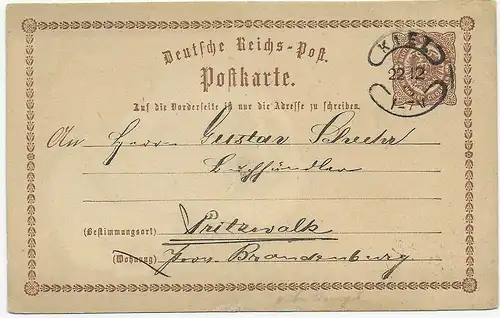 Deutsche Reichs-Post.
Postkarte.
KIEL
22 12
Auf die Vorderseite ist nur die Adresse zu schreiben.
An Herrn Gustav
Buchhändler
(Bestimmungsort) Pritzwalk
(Wohnung) Prov. Brandenburg